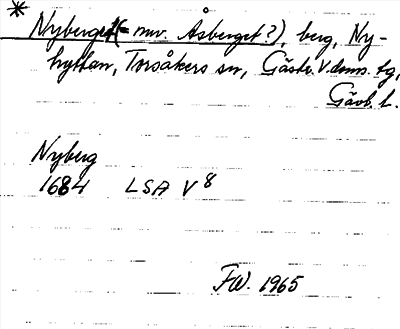 * Nyberget (= nuv. Åsberget?), berg, Ny-
hyttan, Torsåkers sn, Gästr. V. doms. tg,
Gävl. l.
Nyberg
1684 LSA V 8
FW. 1965